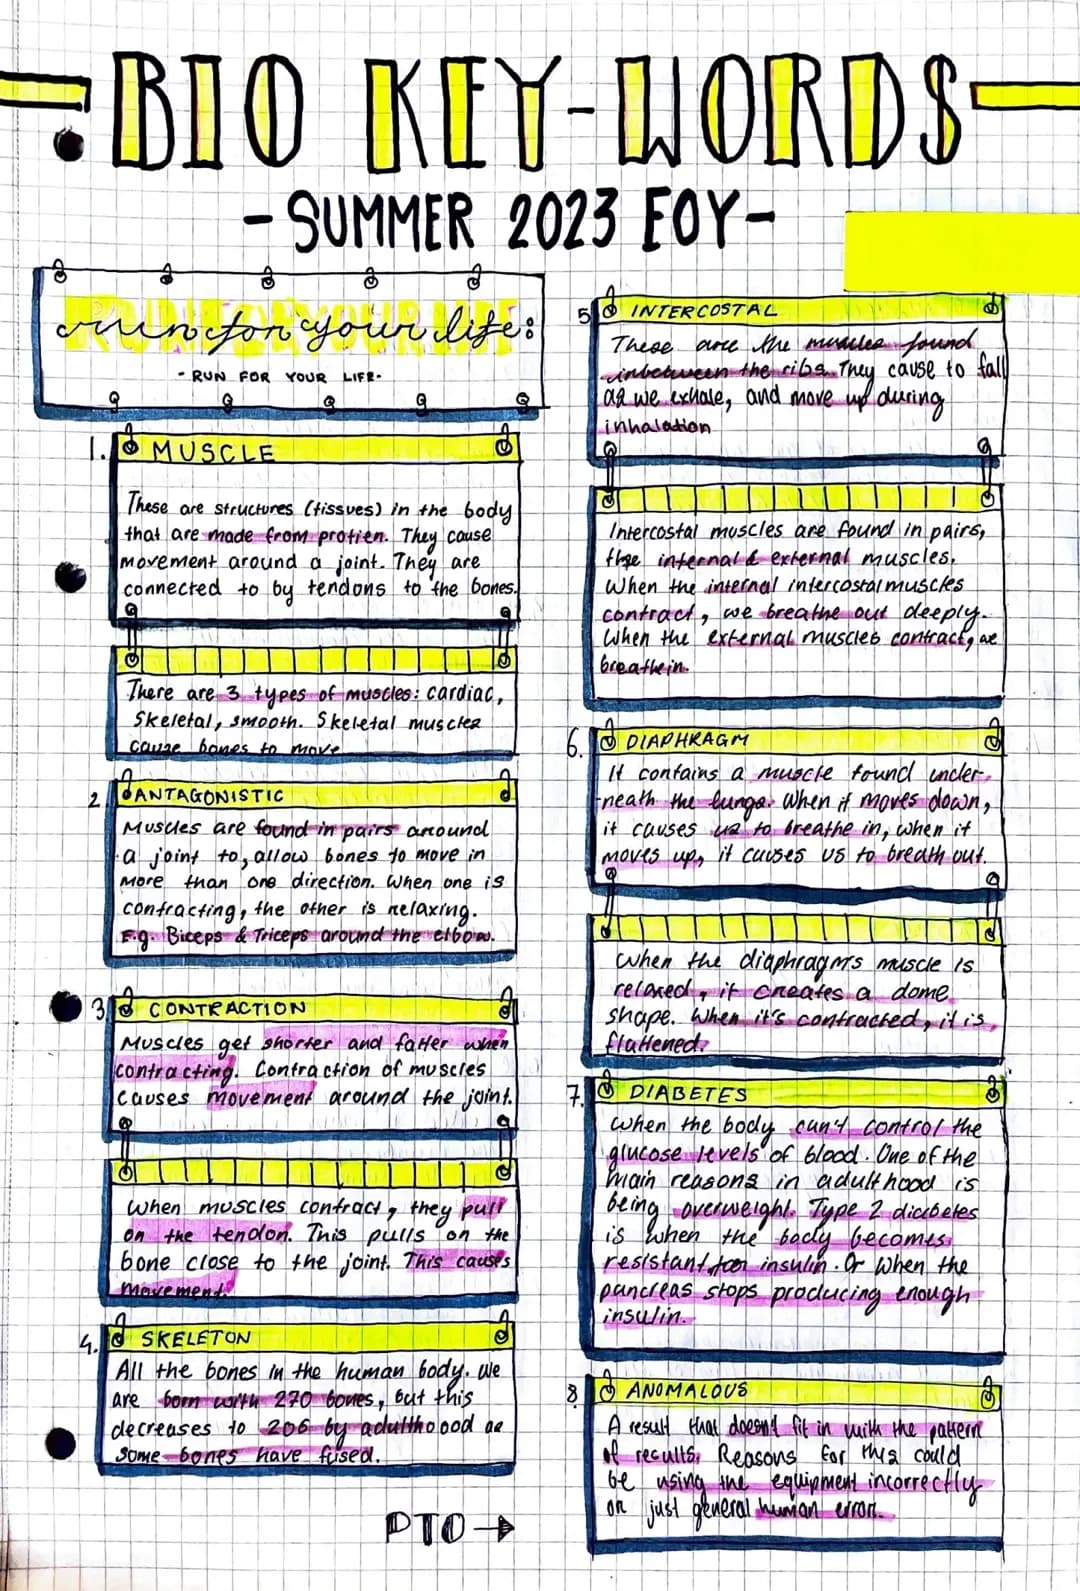 BIO KEY-WORDS
- SUMMER 2023 EOY -
run for your life:
- RUN FOR YOUR LIFE -
1. MUSCLE
These are structures (tissues) in the body
that are made from protien. They cause
movement around a joint. They are
connected to by tendons to the bones.
There are 3 types of muscles: cardiac,
Skeletal, smooth. Skeletal muscles
cause bones to move
2 ANTAGONISTIC
Muscles are found in pairs around
a joint to, allow bones to move in
more than one direction. When one is
contracting, the other is relaxing.
E.g. Biceps & Triceps around the elbow.
3 CONTRACTION
Muscles get shorter and fatter when
contracting. Contraction of muscles
causes movement around the joint.
When muscles contract, they pull
on the tendon. This pulls on the
bone close to the joint. This causes
movement.
4. SKELETON
All the bones in the human body. We
are born with 270 bones, but this
decreases to 206 by adulthood as
some bones have fused.
PTO →
5 INTERCOSTAL
These are the muscles found
inbetween the ribs. They cause to fall
as we exhale, and move up during
inhalation
Intercostal muscles are found in pairs,
internal & external muscles.
When the internal intercostal muscles
contract, we breathe out deeply.
When the external muscles contract, we
breathe in.
6. DIAPHRAGM
It contains a muscle found under-
neath the lungs. When it moves down,
it causes us to breathe in, when it
moves up, it causes us to breath out.
When the diaphragm's muscle is
relaxed, it creates a dome
shape. When it's contracted, it is
flattened.
7. DIABETES
When the body can't control the
glucose levels of blood. One of the
main reasons in adulthood is
being overweight. Type 2 diabetes
is when the body becomes
resistant insulin. Or when the
pancreas stops producing enough
insulin.
8 ANOMALOUS
A result that doesn't fit in with the pattern
of results. Reasons for this could
be using the equipment incorrectly
or just general human error.